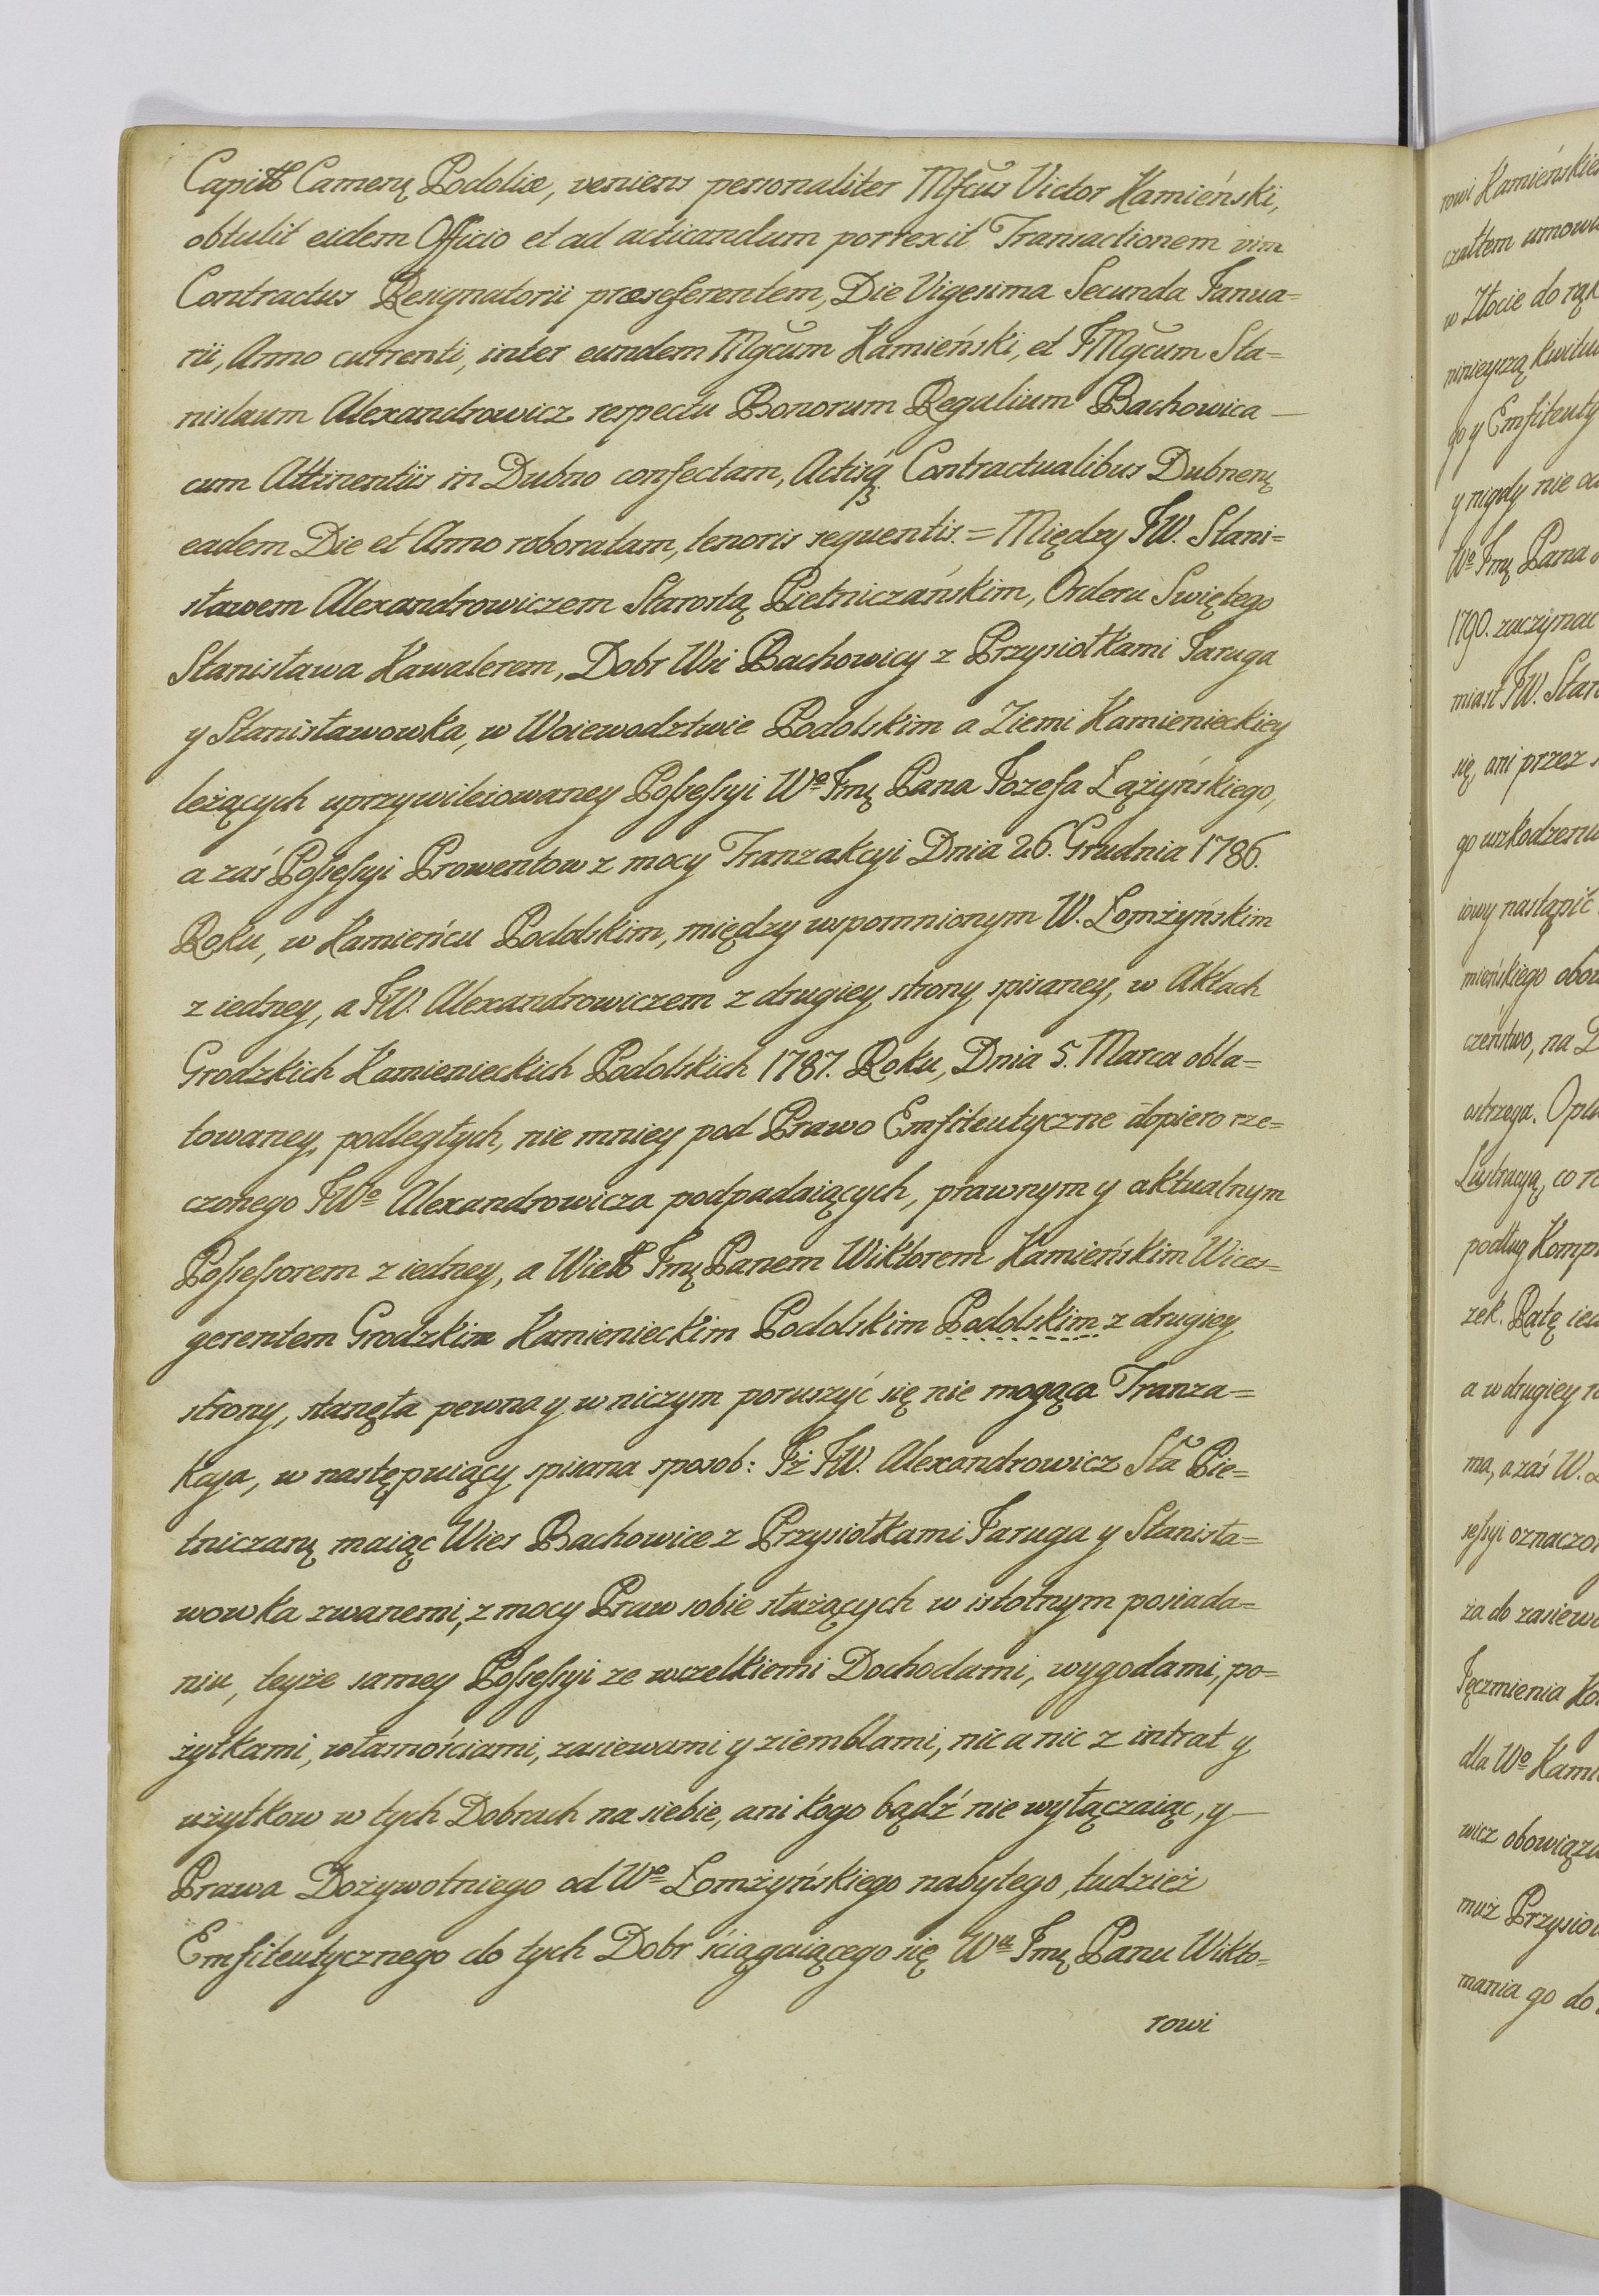 Capitl Camenȩ Podoliæ, veniens personaliter Mfcus Victor Kamieński,
obtulit eidem Officio et ad acticandum porrexit Transactionem vim
Contractus Resignatorii præseferentem, Die Vigesima Secunda Janua=
rii, Anno currenti, inter eundem Mgcum Kamieński, et JMgcum Sta=
nislaum Alexandrowicz respectu Bonorum Regalium Bachowica —
cum Attinentiis in Dubno confectam, Actisq Contractualibus Dubnenȩ
eadem Die et Anno roboratam, tenoris sequentis. = Między JW. Stani=
sławem Alexandrowiczem Starostą Pietniczańskim, Orderu Swiętego
Stanisława Kawalerem, Dobr Wsi Bachowicy z Przysiołkami Jaruga
y Stanisławowka, w Woiewodztwie Podolskim a Ziemi Kamienieckiey
leżących uprzywileiowaney Possessyi Wo Jmȩ Pana Jozefa Łążyńskiego,
a zaś Possessyi Prowentow z mocy Tranzakcyi Dnia 26. Grudnia 1786.
Roku, w Kamieńcu Podolskim, między wspomnionym W. Łomżyńskim
z iedney, a JW. Alexandrowiczem z drugiey strony spisaney, w Aktach
Grodzkich Kamienieckich Podolskich 1787. Roku, Dnia 5. Marca obla=
towaney, podległych, nie mniey pod Prawo Emfiteutyczne dopiero rze=
czonego JWo Alexandrowicza podpadaiących, prawnym y aktualnym
Possessorem z iedney, a Wiel Jmȩ Panem Wiktorem Kamieńskim Wices=
gerentem Grodzkim Kamienieckim Podolskim Podolskim z drugiey
strony, stanęła pewna y w niczym poruszyć się nie mogąca Tranza=
kcya, w następuiący spisana sposob: Jż JW. Alexandrowicz Sta Pie=
tniczanȩ maiąc Wies Bachowice z Przysiołkami Jaruga y Stanisła=
wowka zwanemi, z mocy Praw sobie służących w istotnym posiada=
niu, teyże samey Possessyi ze wszelkiemi Dochodami, wygodami, po=
żytkami, własnościami, zasiewami y ziemblami, nic a nic z intrat y
użytkow w tych Dobrach na siebie, ani kogo bądź nie wyłączaiąc, y —
Prawa Dożywotniego od Wo Łomżyńskiego nabytego, tudzież
Emfiteutycznego do tych Dobr ściągaiącego się Wu Jmȩ Panu Wikto=
rowi
rowi Kamieńskie
czałtem umow
w Złocie do rąk
ninieyszą kwitu
go y Emfiteuty
y nigdy nie od
Wo Jmȩ Pana
1790. zaczynac
miast JW. Star
się, ani przez
go uszkodzeniu
iowy nastąpić
mieńskiego obow
czeństwo, na D
ostrzega. Opła
Lustracyą, co r
podług Komp
zek. Ratę ied
a w drugiey r
ma, a zaś W.
sessyi oznaczon
ża do zasiew
Jęczmienia Ko
dla Wo Kami
wicz obowiązu
muż Przysio
mania go do